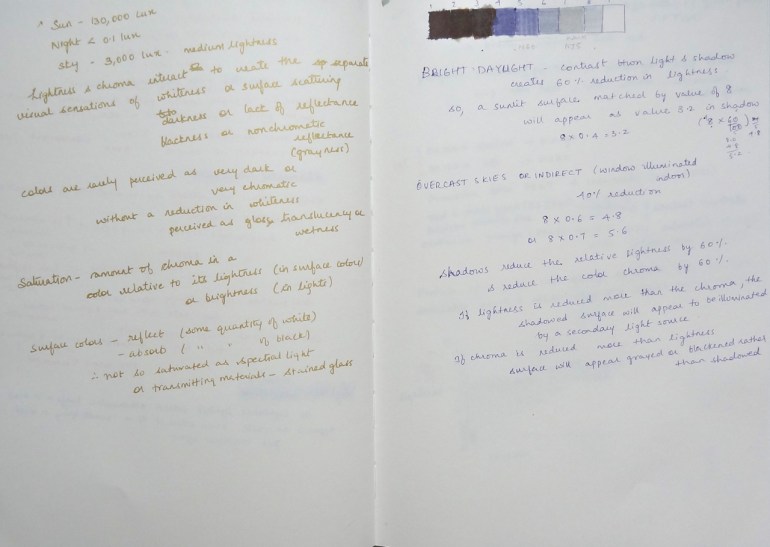 Sun - 130,000 lux
Night < 0.1 lux
Sky - 3,000 lux. medium lightness
Lightness & chroma interact to create the separate
visual sensations of whiteness or surface scattering
darkness or lack of reflectance
blackness or nonchromatic
reflectance
(grayness)
Colors are rarely perceived as very dark or
very chromatic
without a reduction in whiteness
perceived as gloss, translucency or
wetness
Saturation - amount of chroma in a
color relative to its lightness (in surface colors)
or brightness (in lights)
Surface colors - reflect (some quantity of white)
- absorb ( " " of black)
∴ not so saturated as spectral light
or transmitting materials - stained glass
BRIGHT DAYLIGHT - contrast btwn light & shadow
creates 60% reduction in lightness
so, a sunlit surface matched by value of 8
will appear as value 3.2 in shadow
8 x 0.4 = 3.2
OVERCAST SKIES OR INDIRECT (window illuminated
indoor)
40% reduction
8 x 0.6 = 4.8
or 8 x 0.7 = 5.6
Shadows reduce the relative lightness by 60%.
& reduce the color chroma by 60%.
If lightness is reduced more than the chroma, the
shadowed surface will appear to be illuminated
by a secondary light source
If chroma is reduced more than lightness
surface will appear grayed or blackened rather
than shadowed